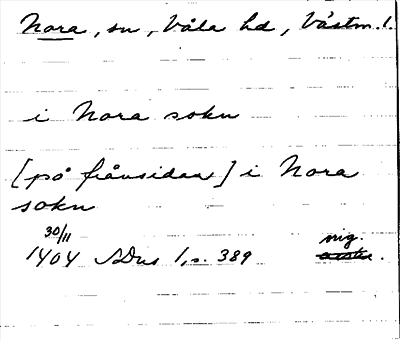 Nora, sn, Våla hd, Västm. l.
i Nora sokn
[på frånsidan] i Nora
sokn
30/11
1404 SDns 1, s. 389 sig.